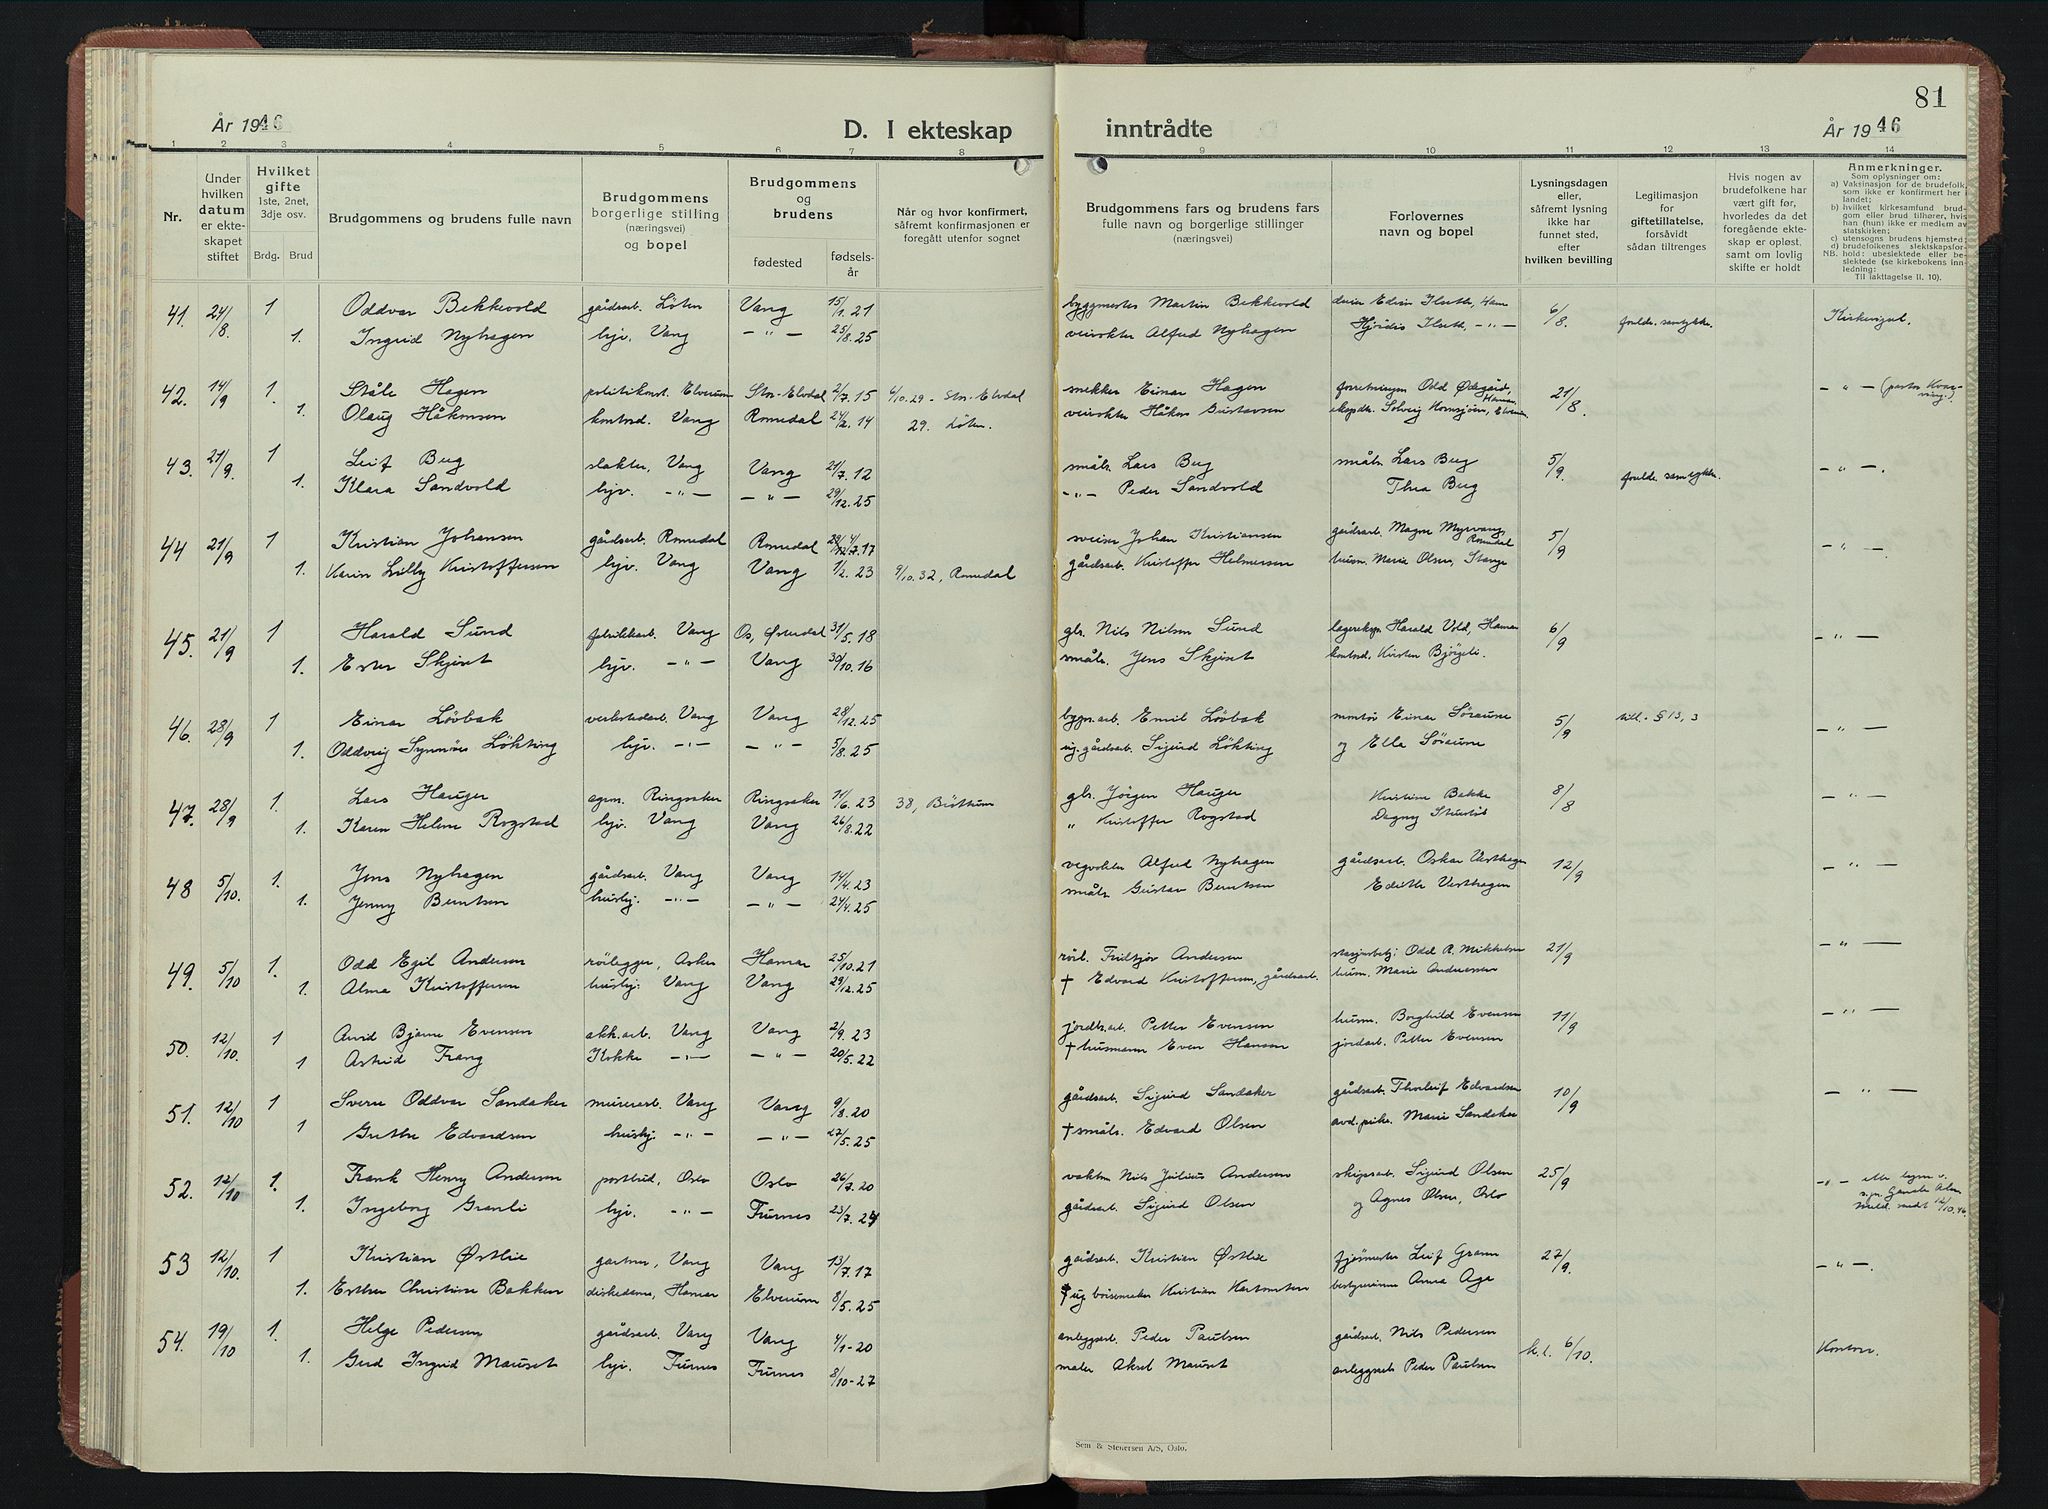 År 1946
D. I ekteskap
1 2 3 4 5 6 7 8
Nr.
Under hvilken datum er ekteskapet stiftet
Hvilket gifte 1ste, 2net, 3dje osv.
Brdg. Brud
Brudgommens og brudens fulle navn
Brudgommens borgerlige stilling (næringsvei) og bopel
Brudgommens og brudens
fødested
fødselsår
Når og hvor konfirmert, såfremt konfirmasjonen er foregått utenfor sognet
41. 24/8. 1 Oddvar Bekkevold gårdsarb. Löten Vang 15/1.21
1. Ingrid Nyhagen hjv. Vang —"— 25/8.25
42. 14/9 1. Ståle Hagen politikonst. Elverum Stor-Elvdal 2/7.15 4/10.29 - Stor-Elvdal
1. Olaug Håkonsen kontord. Vang Romedal 24/2.14 29. Löten.
43. 21/9. 1 Leif Berg slakter, Vang Vang 21/7.12
1. Klara Sandvold hjv. —"— —"— 29/12.25
44 21/9 1 Kristian Johansen gårdsarb. Romedal Romedal 17
1. Karin Lilly Kristoffersen hjv. Vang Vang 1/2.23 9/10.32, Romedal
45. 21/9 1 Harald Sund fabrikkarb. Vang Os, Østerdal 31/5.18
1. Ester Skjeset hjv. —"— Vang 30/10.16
46. 28/9 1 Einar Lövbak verkstedarb. Vang Vang 28/12.25
1. Oddveig Synnöve Lökting hjv. —"— —"— 5/8.25
47. 28/9 1. Lars Hauger agrn. Ringsaker Ringsaker 11/6.23 38, Bröttum
1. Karen Helene Rogstad hjv. Vang Vang 26/8.22
48 5/10. 1. Jens Nyhagen gårdsarb. Vang Vang 14/4.23
1. Jenny Berntsen huslij. —"— —"— 24/4.25
49. 5/10 1. Odd Egil Andersen rörlegger, Asker Hamar 25/10.21
1. Alma Kristoffersen huslij. Vang Vang 29/12.25
50. 12/10. 1 Arvid Bjarne Evensen akk.arb. Vang Vang 2/9.23
1 Astrid Frang Kokke —"— —"— 20/5.22
51. 12/10 1 Sverre Oddvar Sandaker murerarb. Vang Vang 9/8.20
1 Grethe Edvardsen huslij. —"— —"— 27/5.25
52. 12/10 1. Frank Henry Andersen postbud, Oslo Oslo 26/7.20
1. Ingeborg Granli hjv. —"— Furnes 23/7.24
53 12/10. 1 Kristian Østlie gartner, Vang Vang 13/7.17
1. Esther Christine Bakken diskedame, Hamar Elverum 8/5.25
54. 19/10 1. Helge Pedersen gårdsarb. Vang Vang 4/1-20
1. Gerd Ingrid Mauset hjv. Furnes Furnes 8/10-27
81
inntrådte
År 1946
9 10 11 12 13 14
Brudgommens fars og brudens fars fulle navn og borgerlige stillinger (næringsvei)
Forlovernes navn og bopel
Lysningsdagen eller, såfremt lysning ikke har funnet sted, efter hvilken bevilling
Legitimasjon for giftetillatelse, forsåvidt sådan tiltrenges
Hvis nogen av brudefolkene har vært gift før, hvorledes da det foregående ekteskap er opløst, samt om lovlig skifte er holdt
Anmerkninger.
Som oplysninger om:
a) Vaksinasjon for de brudefolk, som ikke er konfirmert her i landet;
b) hvilket kirkesamfund brudgom eller brud tilhører, hvis han (hun) ikke er medlem av statskirken;
c) utensogns brudens hjemsted;
d) brudefolkenes slektskapsforhold: ubeslektede eller beslektede (se kirkebokens innledning:
NB. Til iakttagelse II. 10).
byggmester Martin Bekkevold Edvin Ilseth, Ham 6/8. forelds. samtykke. Kirkevigsel.
veivokter Alfred Nyhagen Hjördis Ilseth, —"—
snekker Einar Hagen forretningsm Odd Ødegård, Hamar 21/8. —"— (pastor Kvarving.)
veivokter Håkon Gustavsen Solveig Kornsjöen, Elverum
småbr. Lars Berg småbr. Lars Berg 5/9. forelds. samtykke. —"—.
—"— Peder Sandvold Thea Berg
sveiser Johan Kristiansen gårdsarb. Magne Myrvang, Romedal 5/9 —"—.
gårdsarb. Kristoffer Helmersen husm. Marie Olsen, Stange
gbr. Nils Nilsen Sund lagereksp. Harald Vold, Hamar 6/9 —"—
småbr. Jens Skjeset kontord. Kirsten Bjørgeli.
bygn.arb. Emil Lövbak montör Einar Söraune 5/9 till. § 13, 3 —"—
ug. gårdsarb. Sigurd Lökting og Ella Söraune
gbr. Jörgen Hauger Kristine Bakke 8/8 —"—
" Kristoffer Rogstad Dagny
vegvokter Alfred Nyhagen gårdsarb. Oskar Vesthagen 12/9 —"—
småbr. Gustav Berntsen Edith Vesthagen
rörl. Fridtjov Andersen stasjonsbetj: Odd R. Mikkelsen 21/9 —"—
† Edvard Kristoffersen, gårdsarb. husm. Marie Anderssen
jordbr.arb. Petter Evensen husm. Borghild Evensen 11/9 —"—
† husmann Even Hansen jordarb. Petter Evensen
gårdsarb. Sigurd Sandaker gårdsarb. Thorleif Edvardsen 10/9 —"—
† småbr. Edvard Olsen avd.pike. Marie Sandaker
vaktm Nils Julius Andersen skipsarb. Sigurd Olsen 25/9 —"— etter
gårdsarb. Sigurd Olsen og Agnes Olsen, Oslo 12/10.46.
gårdsarb. Kristian Østlie fjösmester Leif Gramm 27/9. —"—.
† ug börsemaker Kristian bestyrerinne Anna Aga
anleggsarb. Peder Paulsen gårdsarb. Nils Pedersen k.l. 6/10. Kontoret.
maler Aksel Mauset anleggsarb Peder Paulsen
Sem & Stenersen A/S, Oslo.